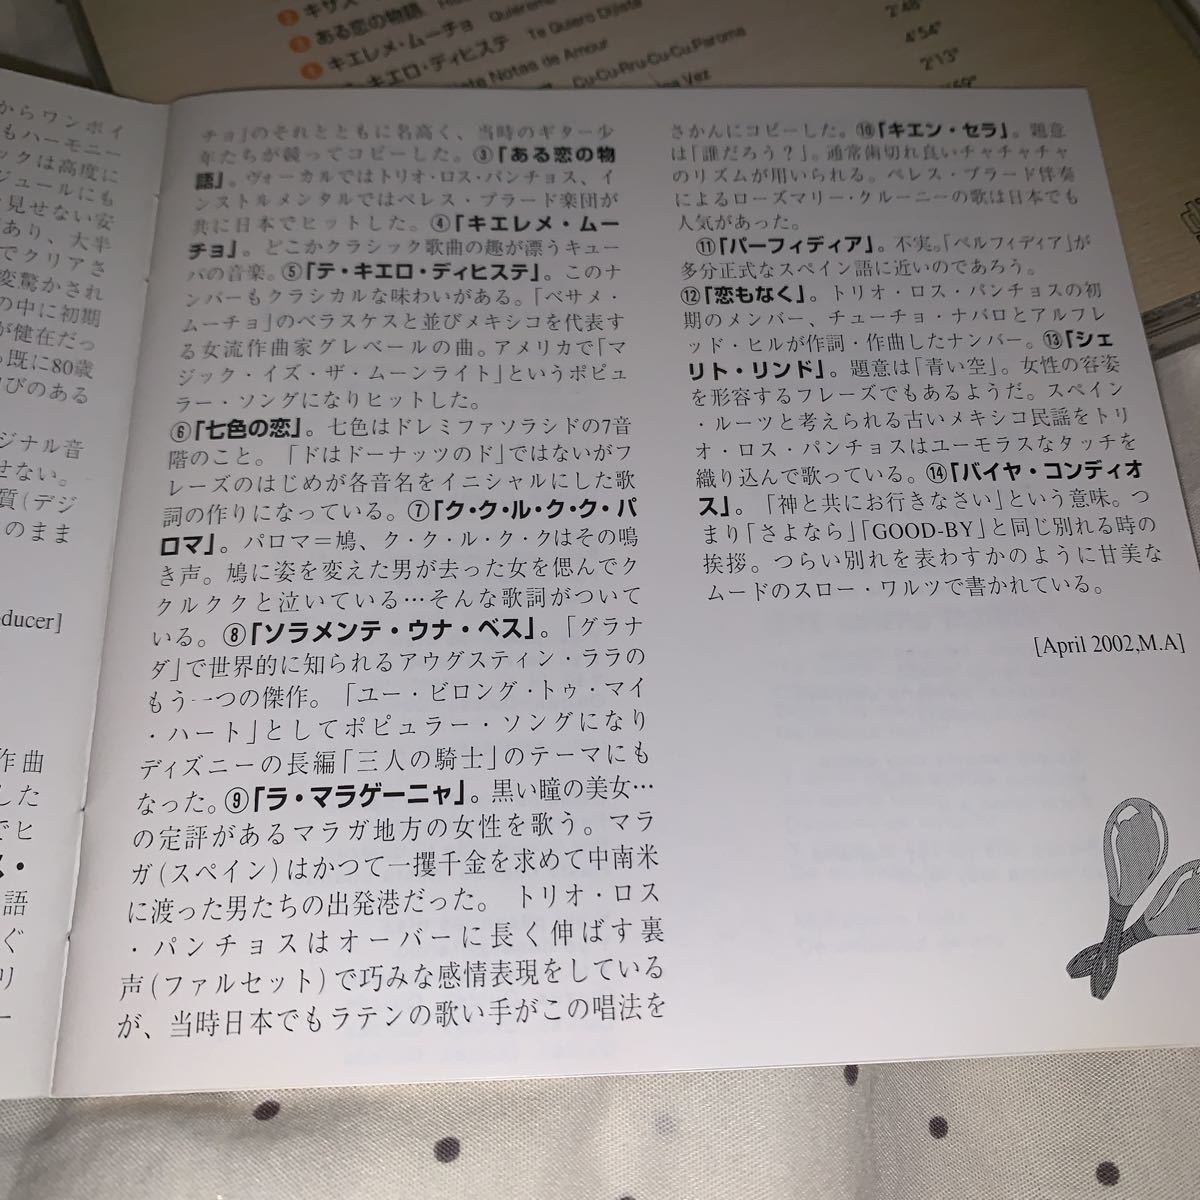 キサス
ある恋の物語
キエレメ・ムーチョ Quiereme
キエロ・ディヒステ Te Quiero Dijiste
Notas de Amour
Cu-Cu-Rru-Cu-Cu,Paroma
Vez
2'48"
4'54"
2'13"
からワンポイ
もハーモニー
ックは高度に
ジュールにも
見せない安
があり、大半
でクリアさ
変驚かされ
の中に初期
が健在だっ
既に80歳
びのある
ジナル音
せない。
質(デジ
のまま
ducer]
作曲
した
でヒ
ス・
語
ぐ
リ
ー
チョ」のそれとともに名高く、当時のギター少
年たちが競ってコピーした。③「ある恋の物
語」。ヴォーカルではトリオ・ロス・パンチョス、イ
ンストルメンタルではペレス・プラード楽団が
共に日本でヒットした。④「キエレメ・ムー
チョ」。どこかクラシック歌曲の趣が漂うキュー
バの音楽。⑤「テ・キエロ・ディヒステ」。このナ
ンバーもクラシカルな味わいがある。「ベサメ・
ムーチョ」のベラスケスと並びメキシコを代表す
る女流作曲家グレベールの曲。アメリカで「マ
ジック・イズ・ザ・ムーンライト」というポピュ
ラー・ソングになりヒットした。
⑥「七色の恋」。七色はドレミファソラシドの7音
階のこと。「ドはドーナッツのド」ではないがフ
レーズのはじめが各音名をイニシャルにした歌
詞の作りになっている。⑦「ク・ク・ル・ク・ク・パ
ロマ」。パロマ＝鳩、ク・ク・ル・ク・クはその鳴
き声。鳩に姿を変えた男が去った女を偲んでク
クルククと泣いている…そんな歌詞がついて
いる。⑧「ソラメンテ・ウナ・ベス」。「グラナ
ダ」で世界的に知られるアウグスティン・ララの
もう一つの傑作。「ユー・ビロング・トゥ・マイ
・ハート」としてポピュラー・ソングになり
ディズニーの長編「三人の騎士」のテーマにも
なった。⑨「ラ・マラゲーニャ」。黒い瞳の美女…
の定評があるマラガ地方の女性を歌う。マラ
ガ(スペイン)はかつて一攫千金を求めて中南米
に渡った男たちの出発港だった。トリオ・ロス
・パンチョスはオーバーに長く伸ばす裏
声(ファルセット)で巧みな感情表現をしている
が、当時日本でもラテンの歌い手がこの唱法を
さかんにコピーした。⑩「キエン・セラ」。題意
は「誰だろう？」。通常歯切れ良いチャチャチャ
のリズムが用いられる。ペレス・プラード伴奏
によるローズマリー・クルーニーの歌は日本でも
人気があった。
⑪「パーフィディア」。不実。「ペルフィディア」が
多分正式なスペイン語に近いのであろう。
⑫「恋もなく」。トリオ・ロス・パンチョスの初
期のメンバー、チューチョ・ナバロとアルフレ
ッド・ヒルが作詞・作曲したナンバー。⑬「シェ
リト・リンド」。題意は「青い空」。女性の容姿
を形容するフレーズでもあるようだ。スペイン
・ルーツと考えられる古いメキシコ民謡をトリ
オ・ロス・パンチョスはユーモラスなタッチを
織り込んで歌っている。⑭「バイヤ・コンディオ
ス」。「神と共にお行きなさい」という意味。つ
まり「さよなら」「GOOD-BY」と同じ別れる時の
挨拶。つらい別れを表わすかのように甘美な
ムードのスロー・ワルツで書かれている。
[April 2002,M.A]